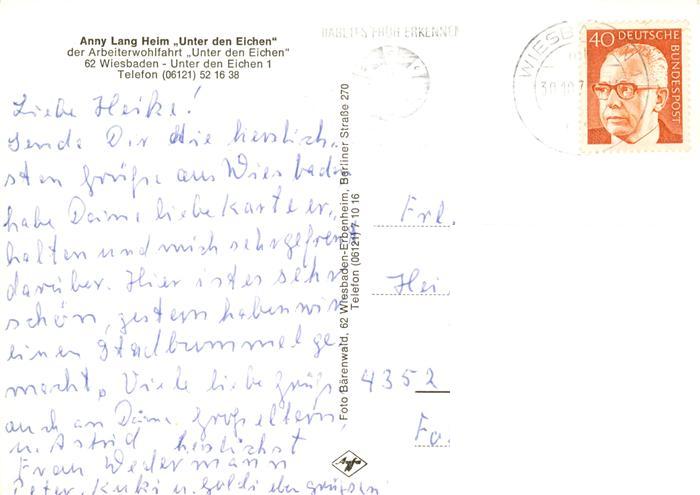 Anny Lang Heim „Unter den Eichen“
der Arbeiterwohlfahrt „Unter den Eichen“
62 Wiesbaden - Unter den Eichen 1
Telefon (06121) 52 16 38
Liebe Heike!
Sende Dir die herzlich-
sten Grüße aus Wiesbaden
habe Deine liebe Karte er-
halten und mich sehr gefreut
darüber. Hier ist es sehr
schön, gestern haben wir
einen Stadtbummel ge-
macht. Viele liebe Grüße
auch an Deine Großeltern,
u. Astrid herzlichst
Frau Wedermann
Peter, Kuki u. Goldi
Foto Bärenwald, 62 Wiesbaden-Erbenheim, Berliner Straße 270
Telefon (06121) 7 10 16
Agfa
DIABETES FRÜH ERKENNEN
WIESBADEN
30.10.7
40 DEUTSCHE
BUNDESPOST
Frl.
Hei
4352